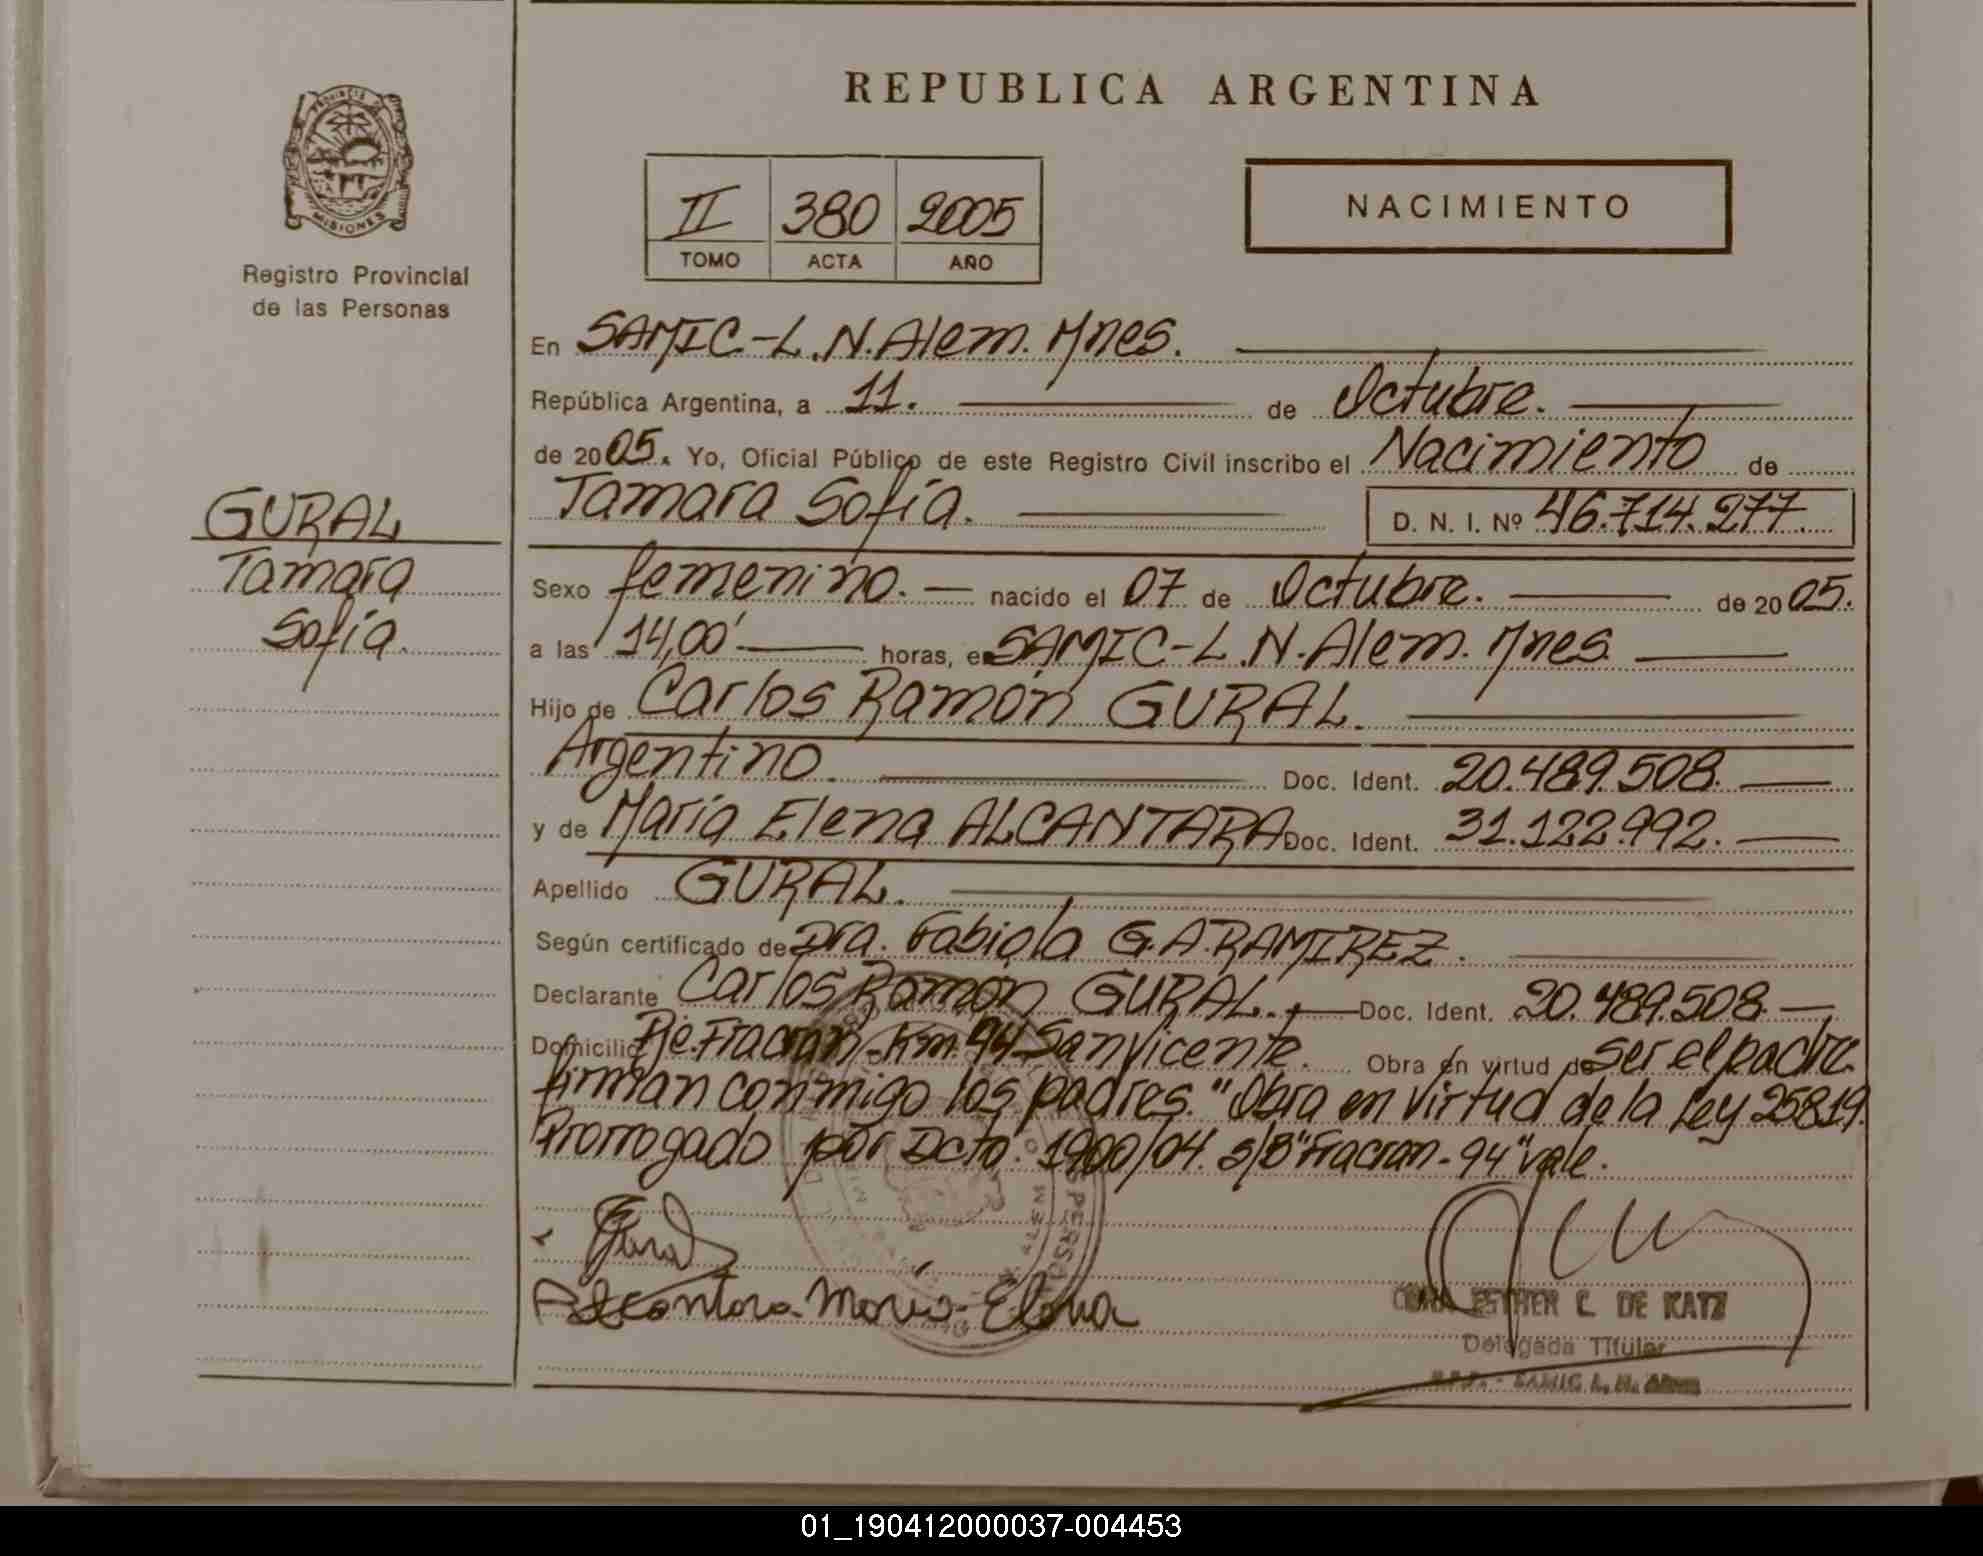 REPUBLICA ARGENTINA
PROVINCIA DE
MISIONES
Registro Provincial
de las Personas
II 380 2005
TOMO ACTA AÑO
NACIMIENTO
En SAMIC-L.N.Alem. Mnes.
República Argentina, a 11. de Octubre.
de 2005. Yo, Oficial Público de este Registro Civil inscribo el Nacimiento de
Tamara Sofía. D. N. I. Nº 46.714.277.
GURAL
Tamara
Sofía.
Sexo femenino. nacido el 07 de Octubre. de 2005.
a las 14,00' horas, en SAMIC-L.N.Alem. Mnes.
Hijo de Carlos Ramón GURAL.
Argentino. Doc. Ident. 20.489.508.
y de María Elena ALCANTARA Doc. Ident. 31.122.992.
Apellido GURAL.
Según certificado de Dra. Fabiola G.A.RAMIREZ.
Declarante Carlos Ramón GURAL. Doc. Ident. 20.489.508.
Domicilio Pje. Fracran-Km.94-San Vicente. Obra en virtud de ser el padre
firman conmigo los padres. "Obra en virtud de la Ley 25819.
Prorrogado por Dcto. 1900/04. s/B "Fracran-94" vale.
Gural
Alcantara María Elena
ESTHER C. DE KATZ
Delegada Titular
R.P.P. - SAMIC L. N. Alem
01_190412000037-004453